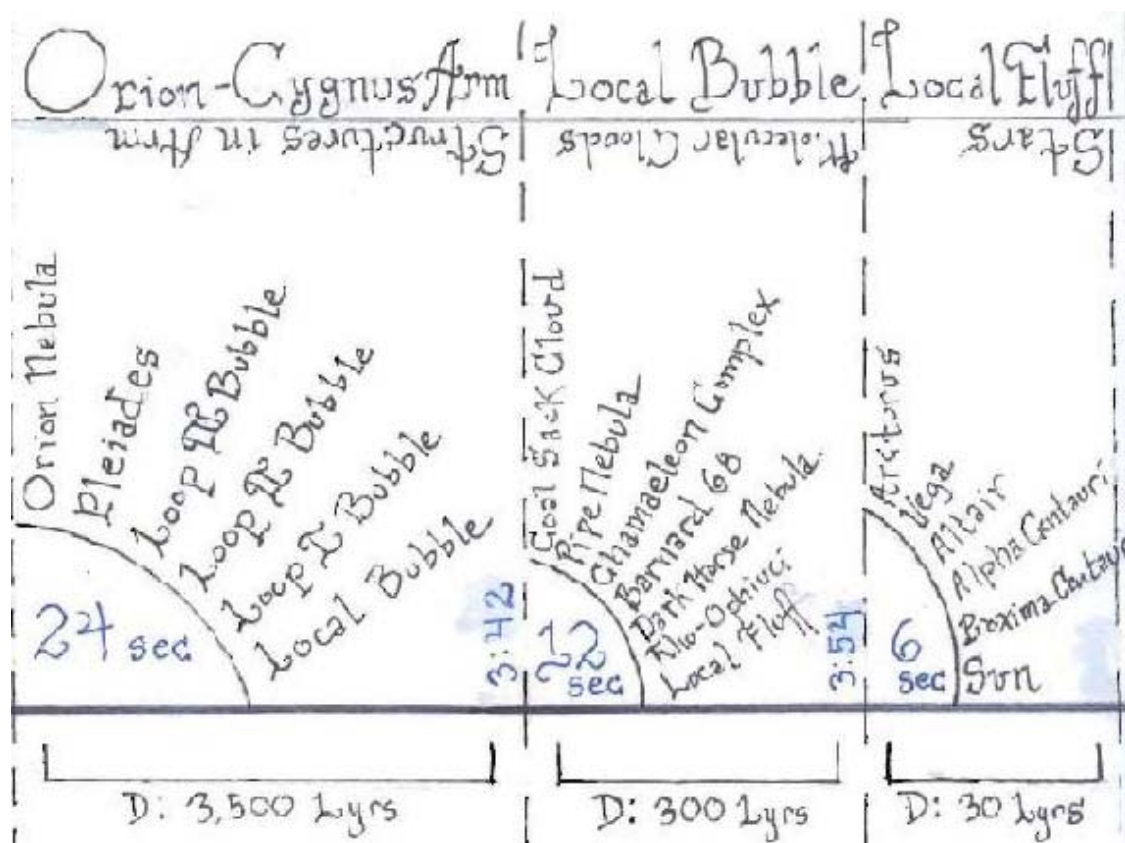 Orion-Cygnus Arm
Structures in Arm
Orion Nebula
Pleiades
Loop III Bubble
Loop II Bubble
Loop I Bubble
Local Bubble
24 sec
3:42
D: 3,500 Lyrs
Local Bubble
Molecular Clouds
Coal Sack Cloud
Pipe Nebula
Chamaeleon Complex
Barnard 68
Dark Horse Nebula
Rho-Ophiuci
Local Fluff
12
sec
3:54
D: 300 Lyrs
Local Fluff
Stars
Arcturus
Vega
Altair
Alpha Centauri
Proxima Centau
Sun
6
sec
D: 30 Lyrs